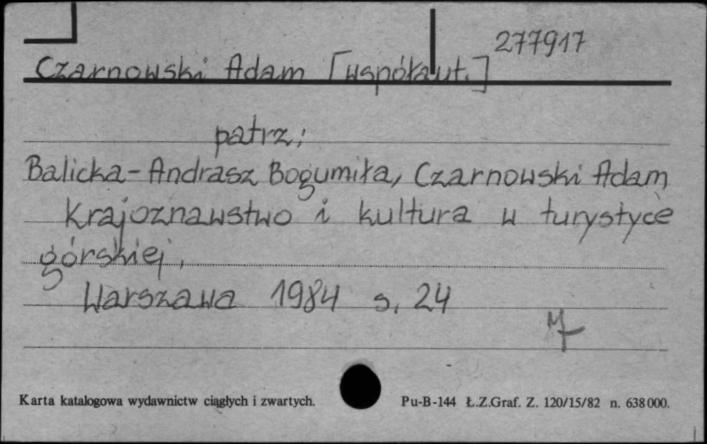 277917
Czarnowski Adam [współaut.]
patrz:
Balicka-Andrasz Bogumiła, Czarnowski Adam
Krajoznawstwo i kultura w turystyce
górskiej,
Warszawa 1984 s. 24
Karta katalogowa wydawnictw ciągłych i zwartych. Pu-B-144 Ł.Z.Graf. Z. 120/15/82 n. 638000.